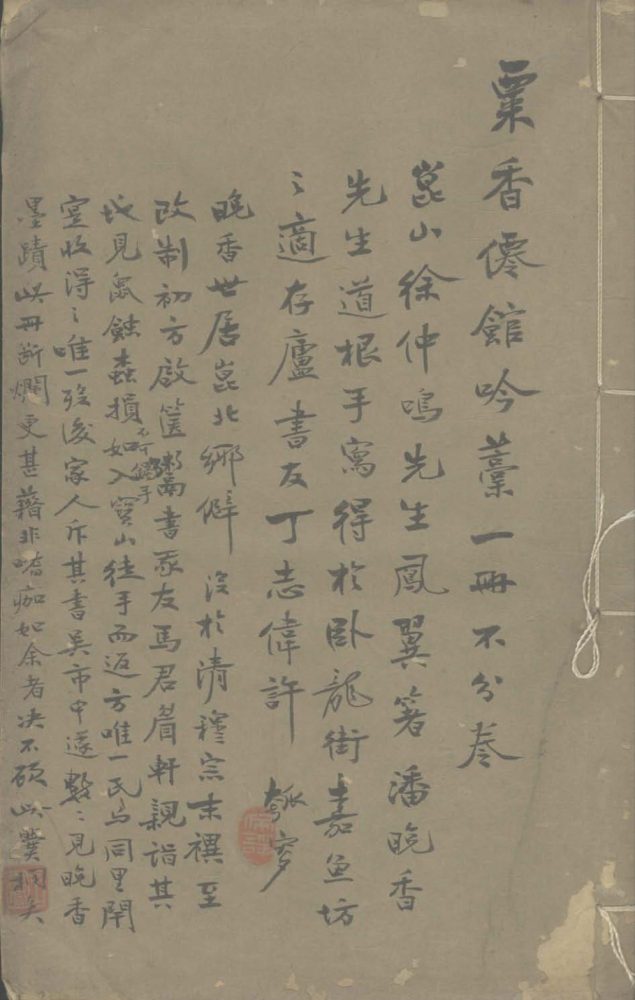 粟香僊館吟藁一冊不分卷
崑山徐仲鳴先生鳳翼著潘晚香
先生道根手寫得於卧龍街嘉魚坊
〻適存廬書友丁志偉許 瓠廬
晚香世居崑北鄉僻沒於清穆宗末禩至
改制初方啟篋鬻書承友馬君眉軒親詣其
氏見鼠蝕蟲損如入寶山徒手而返方唯一氏与同里閈
不可觸手
亟收得〻唯一歿後家人斥其書吴市中遂數〻見晚香
墨蹟此冊斷爛更甚藉非嗜痂如余者决不碩此矣